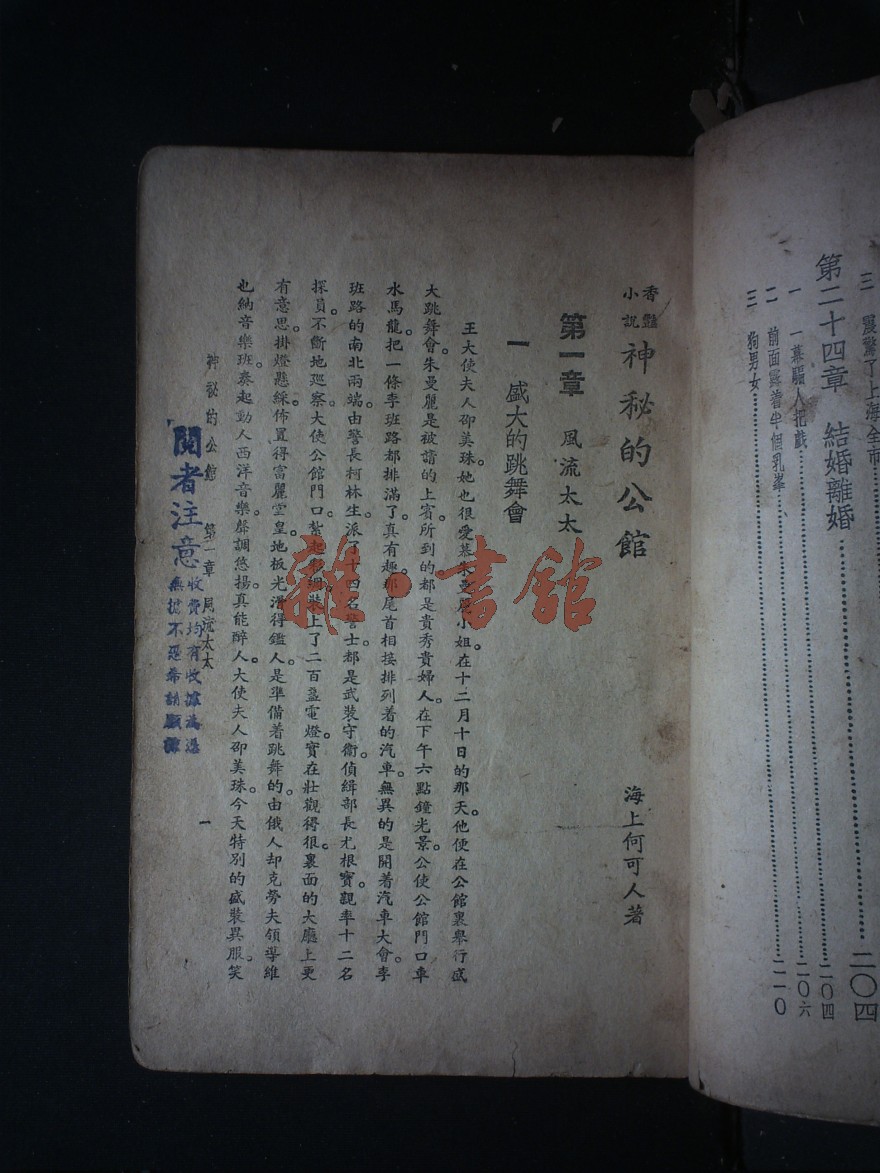 三 震驚了上海全市
第二十四章 結婚離婚……二〇四
一 一幕騙人把戲……二〇四
二 前面露着半個乳峯……二〇六
三 狗男女……二一〇
香豔小説 神秘的公館
海上何可人著
第一章 風流太太
一 盛大的跳舞會
王大使夫人邵美珠。她也很愛慕朱曼麗小姐在十二月十日的那天。他便在公館裏舉行盛
大跳舞會。朱曼麗是被請的上賓所到的都是貴秀貴婦人。在下午六點鐘光景。公使公館門口車
水馬龍。把一條李班路都排滿了。真有趣。那尾首相接排列着的汽車。無異的是開着汽車大會。李
班路的南北兩端。由警長柯林生。派了十四名警士都是武裝守衛偵緝部長尤根寶。親率十二名
探員。不斷地巡察大使公館門口。紮起彩綢裝上了二百盞電燈。實在壯觀得很。裏面的大廳上更
有意思。掛燈懸綵佈置得富麗堂皇。地板光滑得鑑人。是準備着跳舞的。由俄人却克勞夫領導維
也納音樂班。奏起動人西洋音樂。聲調悠揚真能醉人。大使夫人邵美珠。今天特別的盛裝異服。笑
神秘的公館 第一章 風流太太 一
閱者注意
收費均有收據為憑
無據不
雜·書館